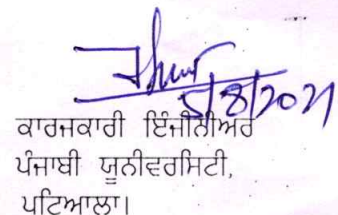 5/8/2021
ਕਾਰਜਕਾਰੀ ਇੰਜੀਨੀਅਰ
ਪੰਜਾਬੀ ਯੂਨੀਵਰਸਿਟੀ,
ਪਟਿਆਲਾ।